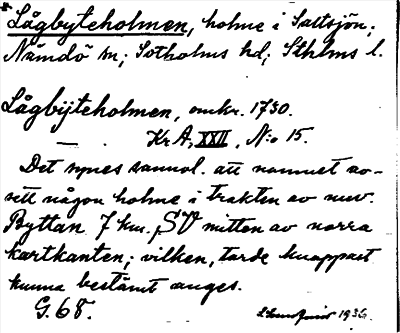 Lågbyteholmen, holme i Saltsjön;
Nämdö sn; Sotholms hd; Sthlms l.
Lågbijteholmen, omkr. 1730.
— Kr A, XXII, N:o 15.
Det synes sannol. att namnet av-
sett någon holme i trakten av nuv.
Byttan 7 km. SV mitten av norra
kartkanten; vilken, torde knappast
kunna bestämt anges.
G. 68.
1936.